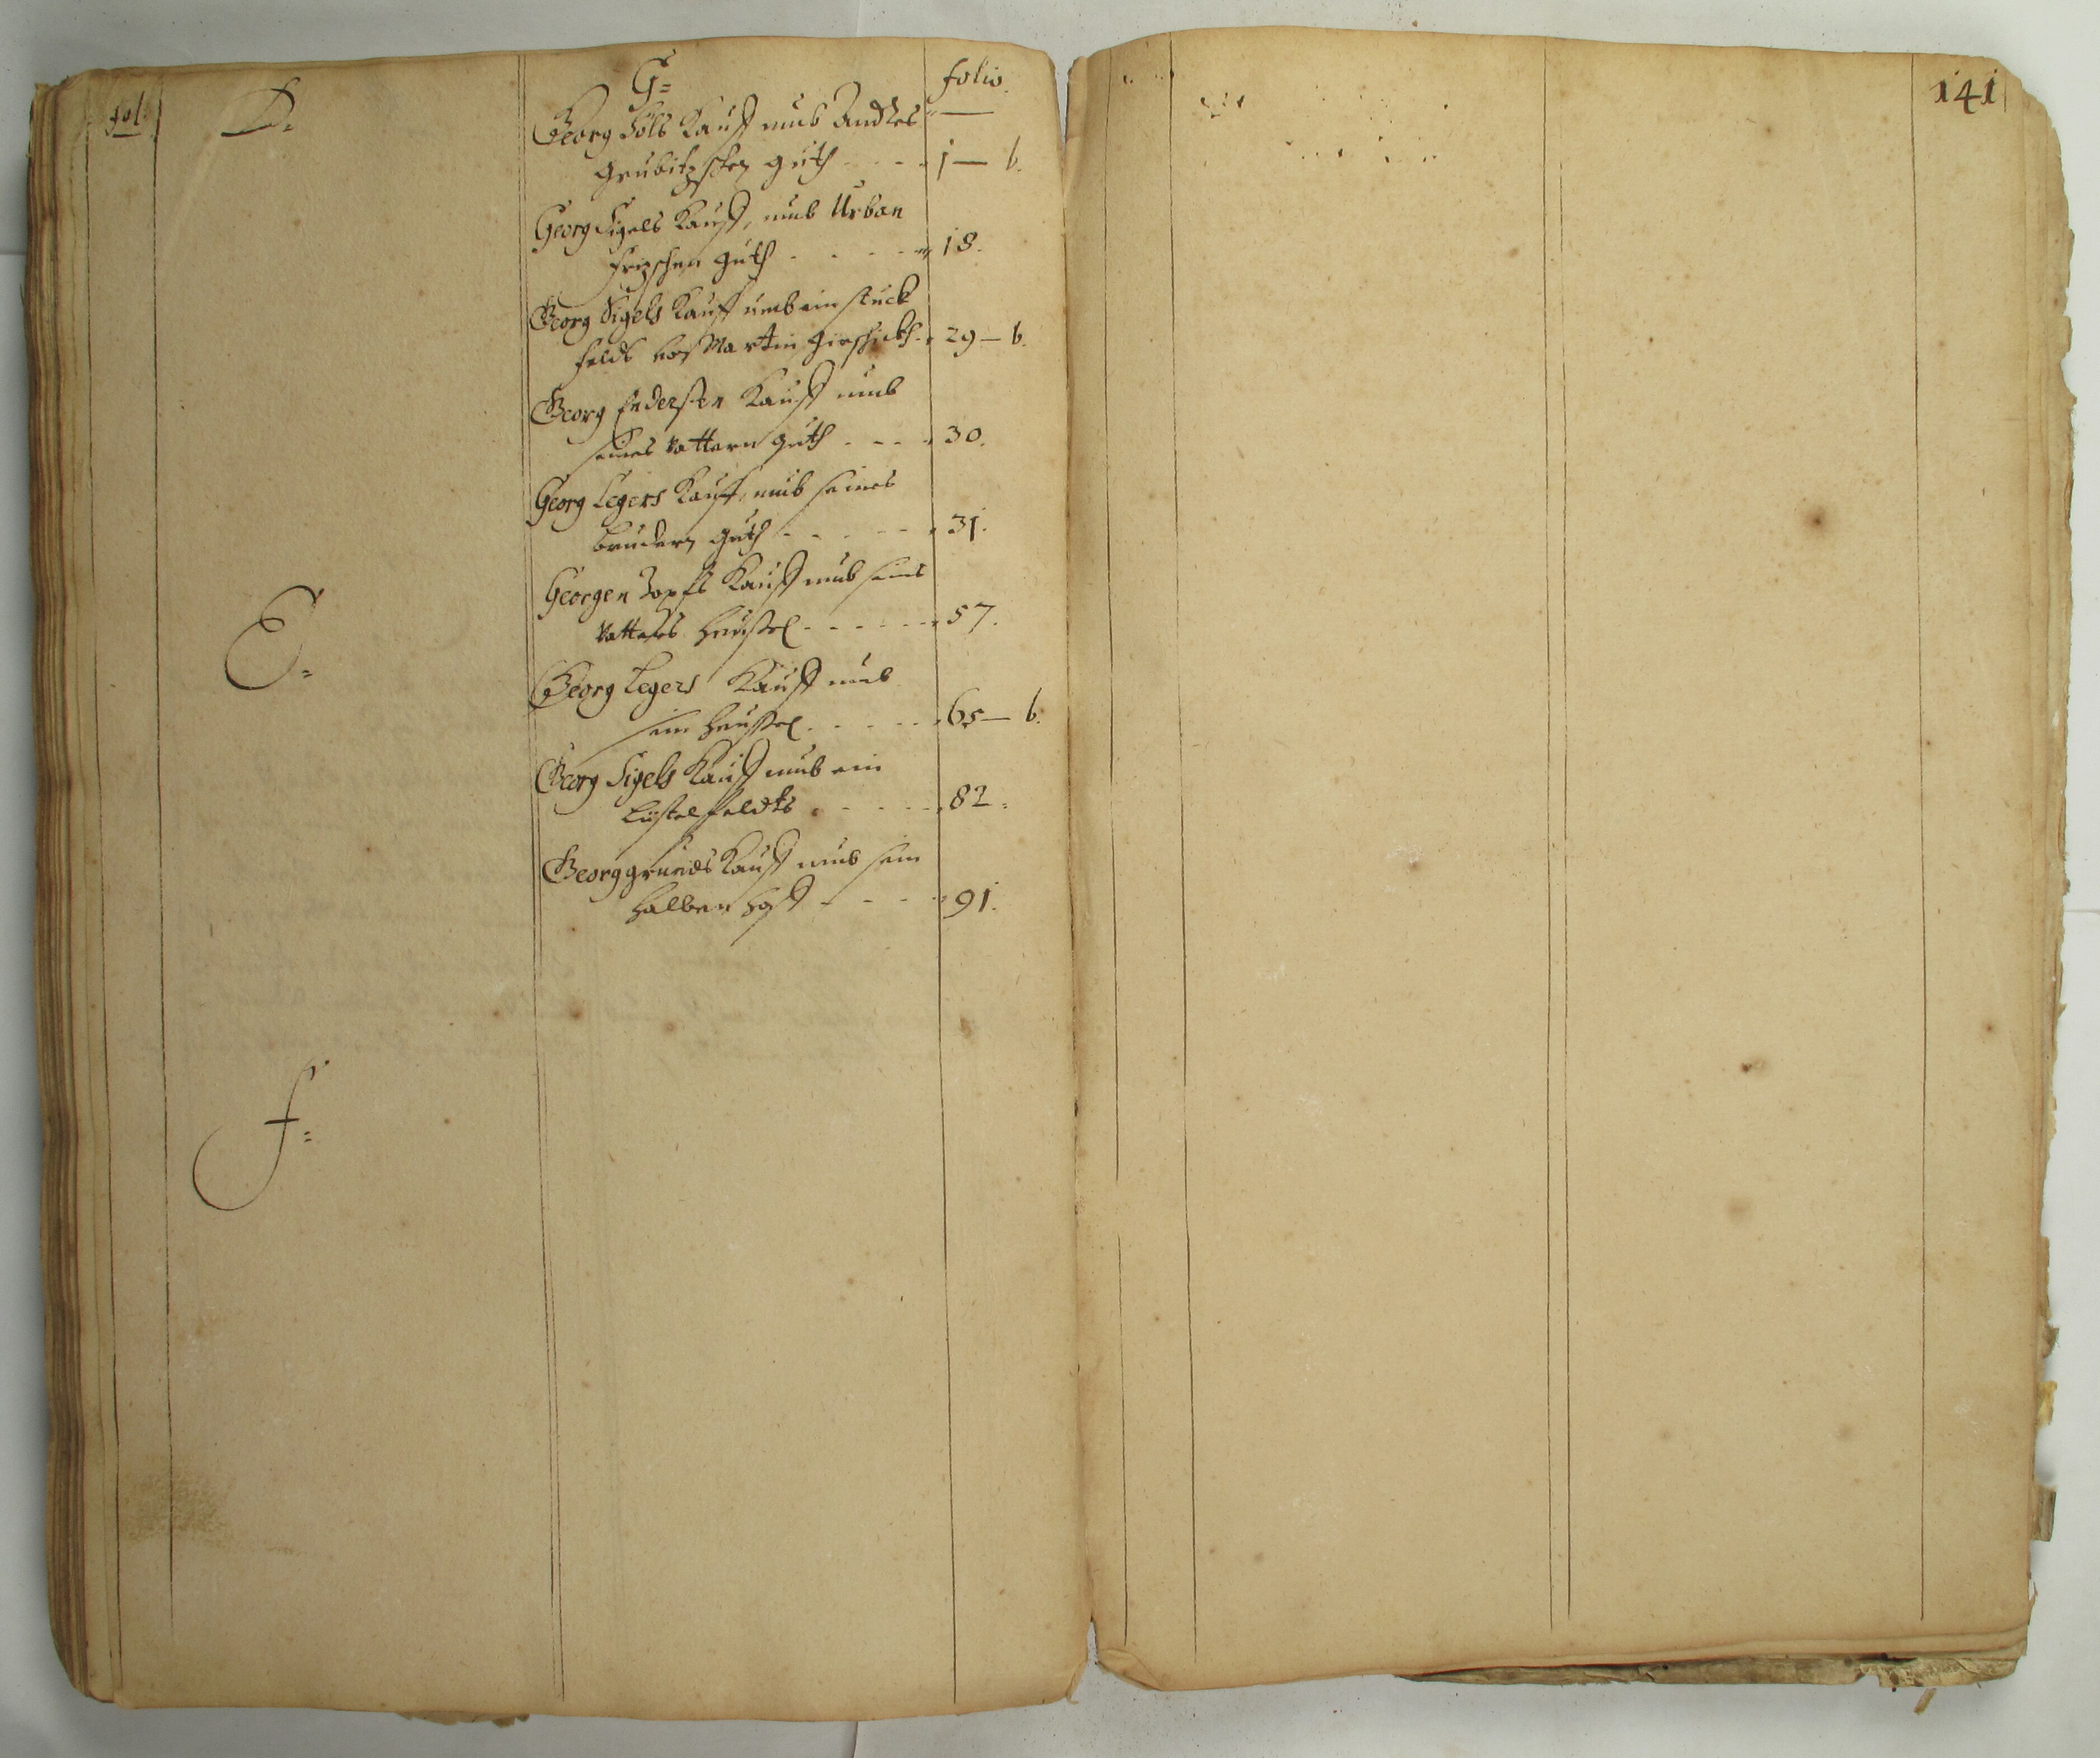 fol.
D.
E.
F.
G.
folio.
Georg Kauff umb
guth 1 — b.
Georg Sigels Kauff, umb Urban
frizschen guth 18.
Georg Sigels Kauff umb ein stuck
feldt Martin 29 — b.
Georg Endersten Kauff umb
seines Vattern guth 30.
Georg Legers Kauff, umb seines
brudern guth 31.
Georgen Zopffs Kauff umb seines
Vatters heussel 57.
Georg Legers Kauff umb
sein heussel 65 — b.
Georg Sigels Kauff umb ein
feldts 82.
Georg grunds Kauff umb sein
halben hoff 91.
141